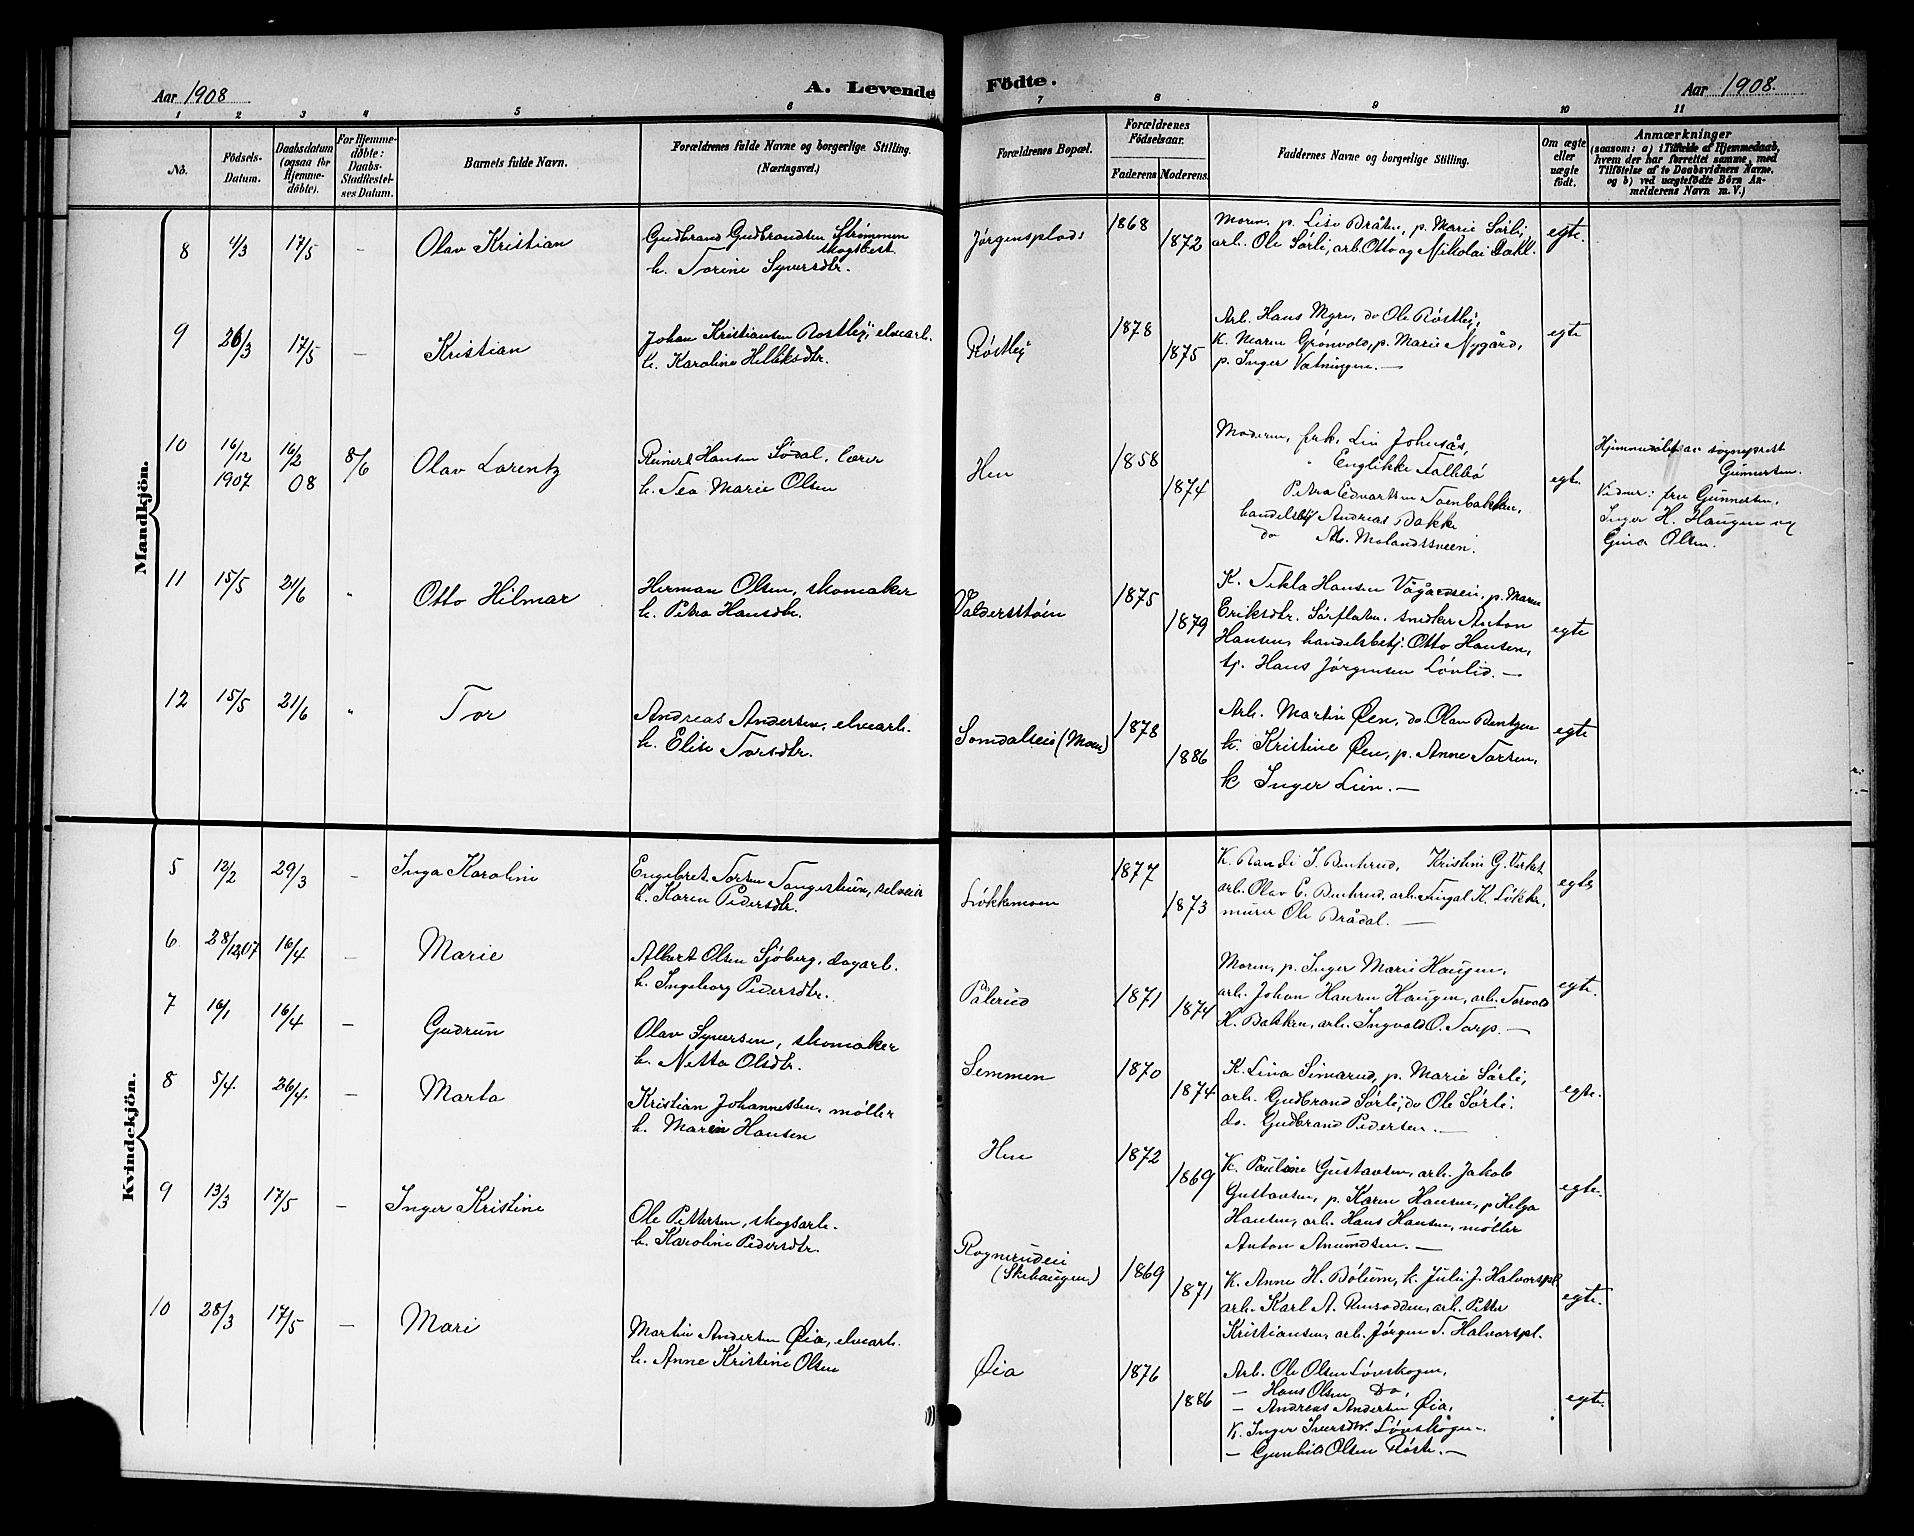 Aar 1908
A. Levende
Födte.
Aar 1908.
1 2 3 4 5 6 7 8 9 10 11
No.
Födsels-
Datum.
Daabsdatum
(ogsaa for
Hjemme-
døbte).
For Hjemme-
døbte:
Daabs-
Stadfæstel-
ses Datum.
Barnets fulde Navn.
Forældrenes fulde Navne og borgerlige Stilling.
(Næringsvei.)
Forældrenes Bopæl.
Forældrenes
Födselsaar.
Faderens Moderens.
Faddernes Navne og borgerlige Stilling.
Om ægte
eller
uægte
födt.
Anmærkninger
(saasom: a) i Tilfælde af Hjemmedaab,
hvem der har forrettet samme, med
Tilföielse af to Daabsvidners Navne,
og b) ved uægtefödte Börn An-
melderens Navn m. V.)
Mandkjön.
8 4/3 17/5 - Olav Kristian
Gudbrand Gudbrandsen Strømmen
skogbest.
h. Torine Syversdtr.
Jørgensplads
1868
1872
Moren, p. Lise Bråten, p. Marie Sørli,
arb. Ole Sørli, arb. Otto og Nikolai Dahl.
egte.
9 26/3 17/5 - Kristian
Johan Kristiansen Røstlej, elvearb.
h. Karoline Helliksdtr.
Røstlej
1878
1875
Arb. Hans Myre, do Ole Røstlej,
K. Maren Grønvold, p. Marie Nygård,
p. Inger Vætningen. -
egte
10 16/12 1907 16/2 08 8/6 Olav Lorentz
Reinert Hansen Sødal, lærer
h. Tea Marie Olsen
Hen
1858
1874
Moderen, frk. Lin Johnsås,
" Englikke Falkbø
Petra Edvartsen Toenbakken,
handelsbtj Andreas Bakke
do Alb. Molandsveen.
egt.
Hjemmedøbt av sogneprest
Gunnersen.
Vidner: fru Gunnersen,
Inger H. Haugen og
Gina Olsen.
11 15/5 21/6 " Otto Hilmar
Herman Olsen, skomaker
h. Petra Hansdtr.
Valdersstøen
1875
1879
K. Tekla Hansen Vågårdsei, p. Maren
Eriksdtr. Sørflaten, snedker Anton
Hansen, handelsbetj. Otto Hansen,
tj. Hans Jørgensen Løvlid. -
egte
12 15/5 21/6 " Tor
Andreas Andersen, elvearb.
h. Elise Torsdtr.
Somdalseie (Moen)
1878
1886
Arb. Martin Øen, do. Olav Bentzen
k. Kristine Øen, p. Anne Torsen,
k Inger Lien. -
egte
Kvindekjön.
5 12/2 29/3 - Inga Karoline
Engebret Torsen Tangestuen, selveier
h. Karen Pedersdtr.
Løkkemoen
1877
1873
K. Randi T. Benterud, Kristine G. Virket
arb. Olav E. Benterud, arb. Tingal K. Løkke,
murer Ole Brådal. -
egte
6 28/12 07 16/4 - Marie
Albert Olsen Sjøberg, dagarb.
h. Ingeborg Pedersdtr.
Pålerud
1871
1874
Moren, p. Inger Marie Haugen,
arb. Johan Hansen Haugen, arb. Torvald
H. Bakken, arb. Ingvald O. Torp. -
egte.
7 16/1 16/4 - Gudrun
Olav Syversen, skomaker
h. Netta Olsdtr.
Semmen
1870
1874
K. Lina Simarud, p. Marie Sørli,
arb. Gudbrand Sørli, do Ole Sørli.
do. Gudbrand Pedersen. -
egte.
8 5/4. 26/4. - Marta
Kristian Johannessen, møller
h. Maren Hansen
Hen
1872
1869
K. Pauline Gustavsen, arb. Jakob
Gustavsen, p. Karen Hansen, p Helga
Hansen, arb. Hans Hansen, møller
Anton Anundsen. -
egte.
9 13/3 17/5 - Inger Kristine
Ole Pettersen, skogsarb.
h. Karoline Pedersdtr.
Rognerudeie
(Skihaugen)
1869
1871
K. Anne H. Bølum, k. Julie J. Halvorspl.
arb. Karl A. Ensrødden, arb. Petter
Kristiansen, arb. Jørgen T. Halvorspl.
egte.
10 28/3 17/5 - Mari
Martin Andersen Øia, elvearb.
h. Anne Kristine Olsen
Øia
1876
1886
Arb. Ole Olsen Løveskogen,
- Hans Olsen Do,
- Andreas Andersen Øia,
K. Inger Iversdtr. Løveskogen.
- Gunhild Olsen Røste. -
egte.